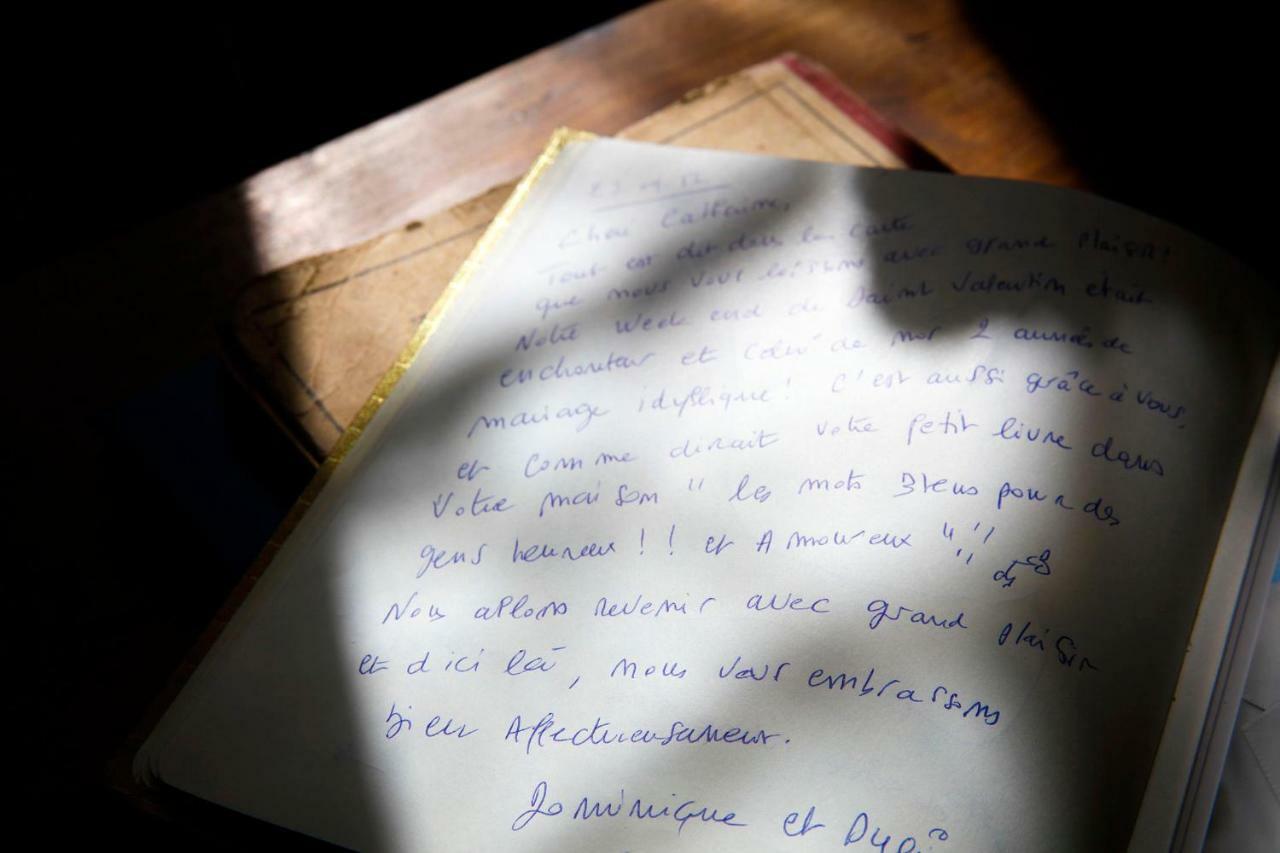 Tout est dit dans la carte
que nous vous laissons avec grand plaisir!
Notre Week end de Saint Valentin était
enchanteur et de nos 2 années de
mariage idyllique! C'est aussi grâce à vous,
et comme dirait votre petit livre dans
votre maison " les mots Bleus pour des
gens heureux !! et Amoureux "
Nous allons revenir avec grand plaisir
et d'ici là, nous vous embrassons
bien Affectueusement.
Dominique et